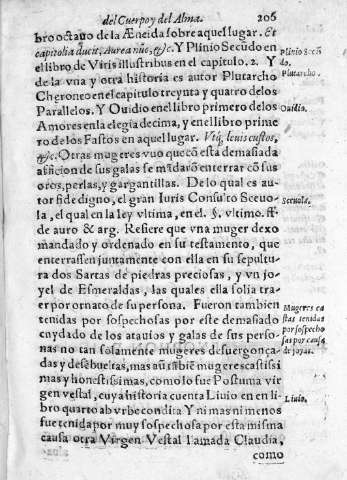 del Cuerpo y del Alma. 206
bro octauo de la Æneida sobre aquel lugar. Et
capitolia ducit, Aurea nũc, &c. Y Plinio Secũdo en
el libro de Viris illustribus en el capitulo. 2. Y
de la vna y otra historia es autor Plutarcho
Cheroneo en el capitulo treynta y quatro de los
Parallelos. Y Ouidio en el libro primero de los
Amores en la elegia decima, y en el libro prime
ro de los Fastos en aquel lugar. Vtq, leuis custos,
&c. Otras mugeres vuo que cõ esta demasiada
aficion de sus galas se mãdarõ enterrar cõ sus
oros, perlas, y gargantillas. De lo qual es au-
tor fidedigno, el gran Iuris Consulto Sceuo-
la, el qual en la ley vltima, en el. §. vltimo. ff.
de auro & arg. Refiere que vna muger dexo
mandado y ordenado en su testamento, que
enterrassen juntamente con ella en su sepultura
dos Sartas de piedras preciosas, y vn jo-
yel de Esmeraldas, las quales ella solia tra-
er por ornato de su persona. Fueron tambien
tenidas por sospechosas por este demasiado
cuydado de los atauios y galas de sus perso-
nas no tan solamente mugeres desuergonça-
das y desẽbueltas, mas aũ tãbiẽ mugeres castissi
mas y honestissimas, como lo fue Postuma vir
gen vestal, cuya historia cuenta Liuio en en li-
bro quarto ab vrbe condita Y ni mas ni menos
fue tenida por muy sospechosa por esta misma
causa otra Virgen Vestal llamada Claudia,
como
Plinio Secũ
do.
Plutarcho.
Ouidio.
Sceuola.
Mugeres ca
stas tenidas
por sospecho
sas por causa
de joyas.
Liuio.